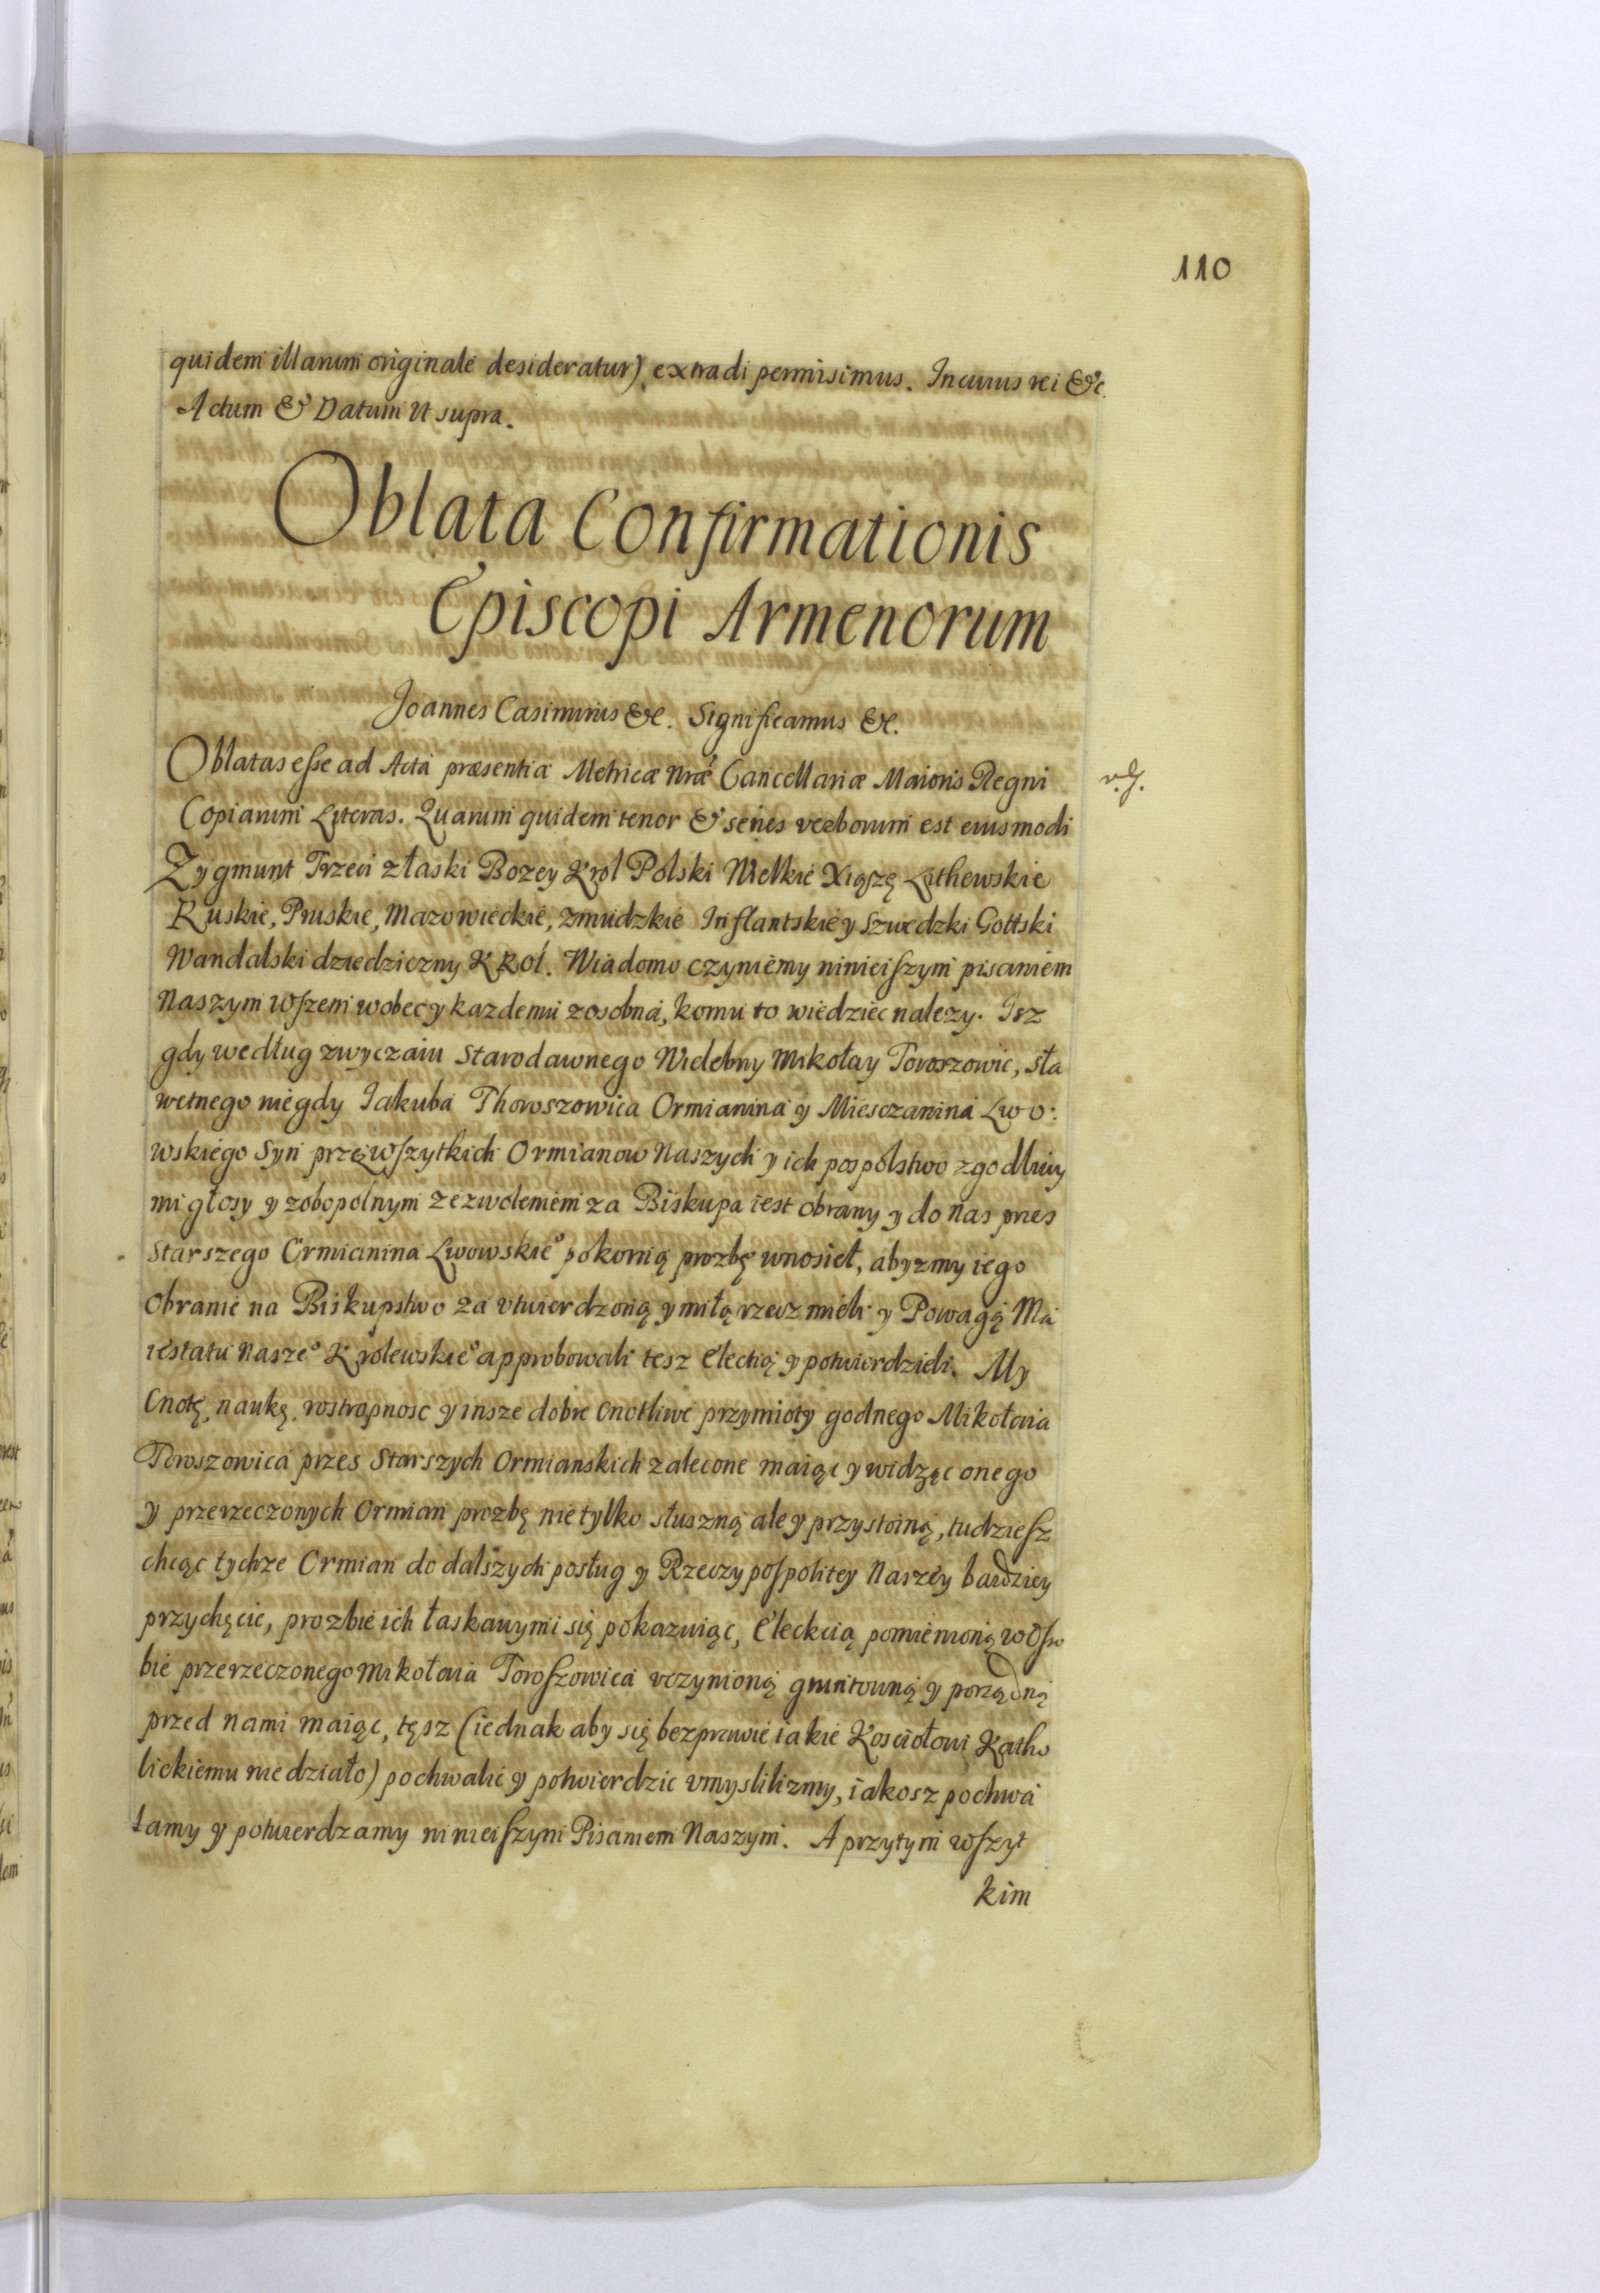 110
quidem illarum originale desideratur) extradi permisimus. In cuius rei &c.
Actum & Datum ut supra.
Oblata Confirmationis
Episcopi Armenorum
Joannes Casimirus &c. Significamus &c.
Oblatas esse ad Acta præsentia Metricæ nræ Cancellariæ Maioris Regni
Copiarum Literas. Quarum quidem tenor & series verborum est eiusmodi
Zygmunt Trzeci złaski Bozey Krol Polski Wielkie Xiąszę Lithewskie
Ruskie, Pruskie, Mazowieckie, Zmudzkie Inflantskie y Szwedzki Gottski
Wandalski dziedziczny KRol. Wiadomo czyniemy ninieiszym pisaniem
Naszym wszem wobec y kazdemu zosobna, komu to wiedziec nalezy. Isz
gdy według zwyczaiu starodawnego Wielebny Mikołay Toroszowic, sła
wetnego niegdy Iakuba Thoroszowica Ormianina y Miesczanina Lwo:
wskiego Syn przez wszytkich Ormianow Naszych y ich pospolstwo zgodliwy
mi głosy y zobopolnym zezwoleniem za Biskupa iest obrany y do nas przes
Starszego Ormianina Lwowskie° pokorną prozbę wnosieł, abyzmy iego
Obranie na Biskupstwo za utwierdzoną y miłą rzecz mieli y Powagą Ma
iestatu Nasze° Krolewskie° approbowali tesz Electią y potwierdzieli. My
Cnotę, naukę, rostropnosc y insze dobre cnotliwe przymioty godnego Mikołaia
Toroszowica przes Starszych Ormianskich zalecone maiąc y widząc onego
y przerzeczonych Ormian prozbę nie tylko słuszną ale y przystoiną, tudziesz
chcąc tychze Ormian do dalszych posług y Rzeczypospolitey Naszey bardziey
przychęcic, prozbie ich łaskawymi się pokazuiąc, Eleckcią pomienioną w oso
bie przerzeczonego Mikołaia Toroszowica uczynioną gruntowną y porządną
przed Nami maiąc, tęsz (iednak aby się bezprawie iakie Kosciołowi Katho
lickiemu nie działo) pochwalic y potwierdzic umyslilizmy, iakosz pochwa
lamy y potwierdzamy ninieiszym Pisaniem Naszym. A przytym wszyt
kim